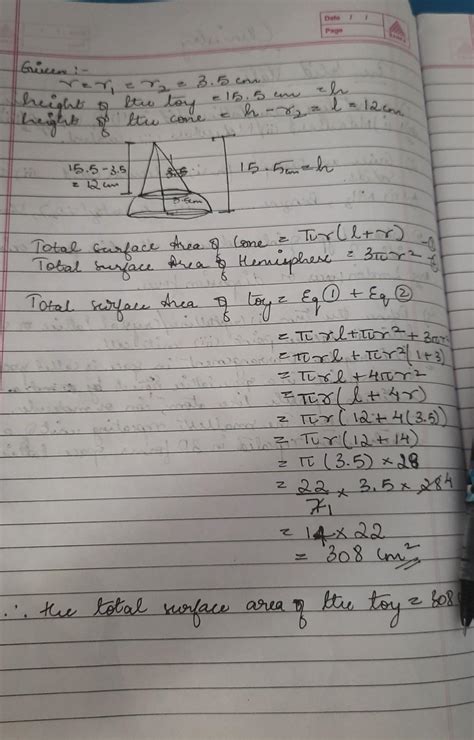 Date / /
Page
Given :-
r = r₁ = r₂ = 3.5 cm
height of the toy = 15.5 cm = h
height of the cone = h - r₂ = l = 12 cm
15.5 - 3.5
= 12 cm
3.5
15.5cm = h
Total surface Area of Cone = πr(l+r) -
Total surface Area of Hemisphere = 3πr² -
Total surface Area of toy = Eq ① + Eq ②
= πrl + πr² + 3πr
= πrl + πr²(1+3)
= πrl + 4πr²
= πr(l + 4r)
= πr(12 + 4(3.5))
= πr(12 + 14)
= π(3.5) × 28
= 22/7 × 3.5 × 284
1
= 14 × 22
= 308 cm²
∴ the total surface area of the toy = 308